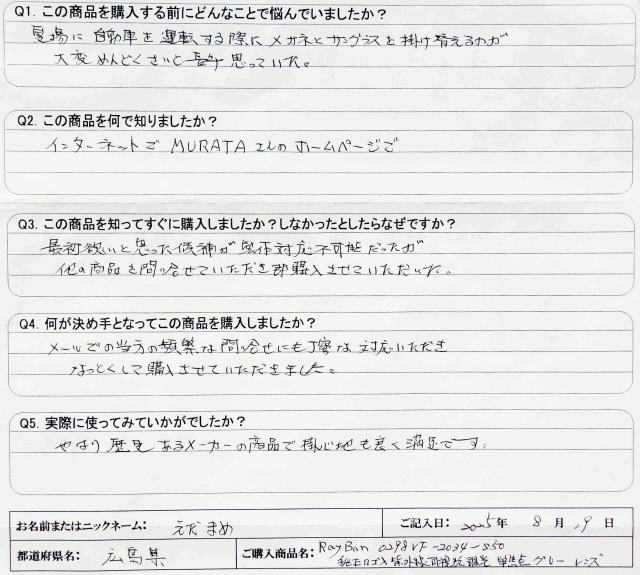 Q1. この商品を購入する前にどんなことで悩んでいましたか？
夏場に自動車を運転する際にメガネとサングラスを掛け替えるのが
大変めんどくさいと思っていた。
Q2. この商品を何で知りましたか？
インターネットで MURATAさんのホームページで
Q3. この商品を知ってすぐに購入しましたか？しなかったとしたらなぜですか？
最初欲いと思った候補が製作対応不可能だったが
他の商品を問い合せていただき即購入させていただいた。
Q4. 何が決め手となってこの商品を購入しましたか？
メールでの当方の頻繁な問い合せにも丁寧な対応いただき
なっとくして購入させていただきました。
Q5. 実際に使ってみていかがでしたか？
やはり歴史あるメーカーの商品で掛け心地も良く満足です。
お名前またはニックネーム： えだまめ
ご記入日： 2025年 8月 19日
都道府県名： 広島県
ご購入商品名： RayBan 0298VF-2034-S50
純正ロゴ入 紫外線可視光調光 単焦点 グレー レンズ